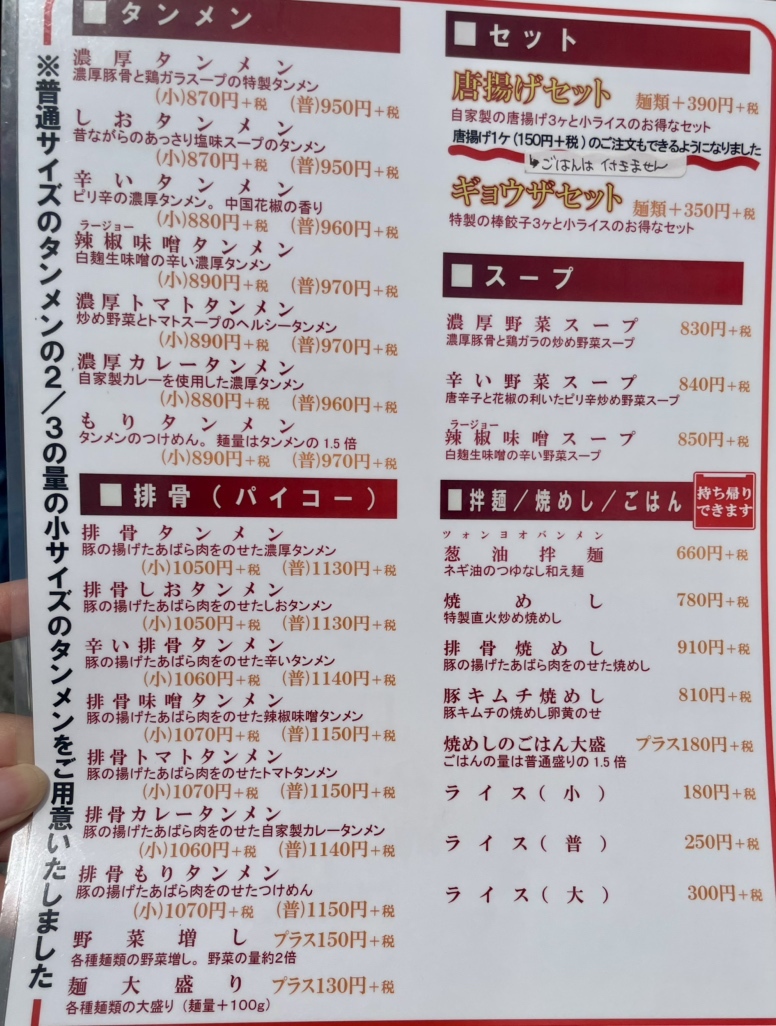 ※普通サイズのタンメンの2/3の量の小サイズのタンメンをご用意いたしました
■タンメン
濃厚タンメン
濃厚豚骨と鶏ガラスープの特製タンメン
(小)870円+税 (普)950円+税
しおタンメン
昔ながらのあっさり塩味スープのタンメン
(小)870円+税 (普)950円+税
辛いタンメン
ピリ辛の濃厚タンメン。中国花椒の香り
(小)880円+税 (普)960円+税
ラージョー
辣椒味噌タンメン
白麹生味噌の辛い濃厚タンメン
(小)890円+税 (普)970円+税
濃厚トマトタンメン
炒め野菜とトマトスープのヘルシータンメン
(小)890円+税 (普)970円+税
濃厚カレータンメン
自家製カレーを使用した濃厚タンメン
(小)880円+税 (普)960円+税
もりタンメン
タンメンのつけめん。麺量はタンメンの1.5倍
(小)890円+税 (普)970円+税
■排骨(パイコー)
排骨タンメン
豚の揚げたあばら肉をのせた濃厚タンメン
(小)1050円+税 (普)1130円+税
排骨しおタンメン
豚の揚げたあばら肉をのせたしおタンメン
(小)1050円+税 (普)1130円+税
辛い排骨タンメン
豚の揚げたあばら肉をのせた辛いタンメン
(小)1060円+税 (普)1140円+税
排骨味噌タンメン
豚の揚げたあばら肉をのせた辣椒味噌タンメン
(小)1070円+税 (普)1150円+税
排骨トマトタンメン
豚の揚げたあばら肉をのせたトマトタンメン
(小)1070円+税 (普)1150円+税
排骨カレータンメン
豚の揚げたあばら肉をのせた自家製カレータンメン
(小)1060円+税 (普)1140円+税
排骨もりタンメン
豚の揚げたあばら肉をのせたつけめん
(小)1070円+税 (普)1150円+税
野菜増し プラス150円+税
各種麺類の野菜増し。野菜の量約2倍
麺大盛り プラス130円+税
各種麺類の大盛り(麺量+100g)
■セット
唐揚げセット 麺類+390円+税
自家製の唐揚げ3ヶと小ライスのお得なセット
唐揚げ1ケ(150円+税)のご注文もできるようになりました
↳ごはんは付きません
ギョウザセット 麺類+350円+税
特製の棒餃子3ヶと小ライスのお得なセット
■スープ
濃厚野菜スープ 830円+税
濃厚豚骨と鶏ガラの炒め野菜スープ
辛い野菜スープ 840円+税
唐辛子と花椒の利いたピリ辛炒め野菜スープ
ラージョー
辣椒味噌スープ 850円+税
白麹生味噌の辛い野菜スープ
■拌麺/焼めし/ごはん
持ち帰り
できます
ツォンヨオバンメン
葱油拌麺 660円+税
ネギ油のつゆなし和え麺
焼めし 780円+税
特製直火炒め焼めし
排骨焼めし 910円+税
豚の揚げたあばら肉をのせた焼めし
豚キムチ焼めし 810円+税
豚キムチの焼めし卵黄のせ
焼めしのごはん大盛 プラス180円+税
ごはんの量は普通盛りの1.5倍
ライス(小) 180円+税
ライス(普) 250円+税
ライス(大) 300円+税